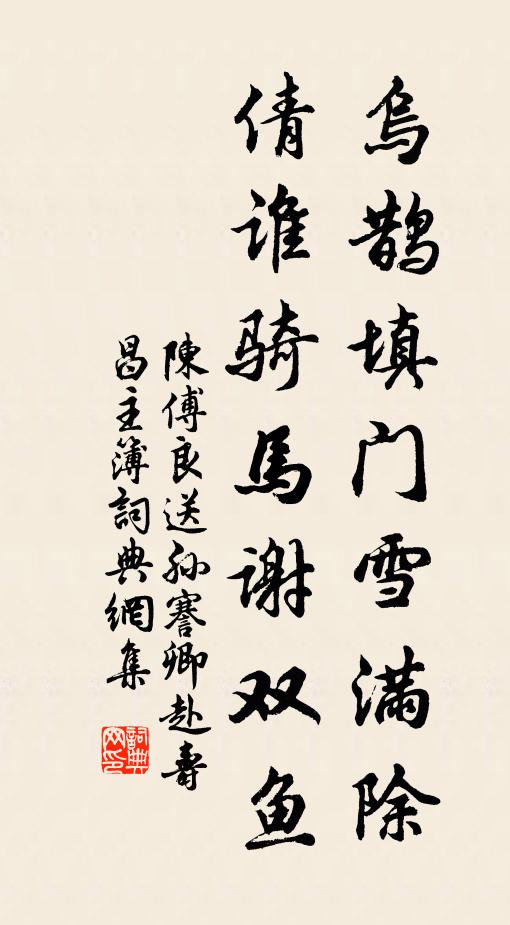 乌鹊填门雪满除
倩谁骑馬谢双鱼
陳傅良送孙謇卿赴壽
昌主簿詞典網集
詞典网印